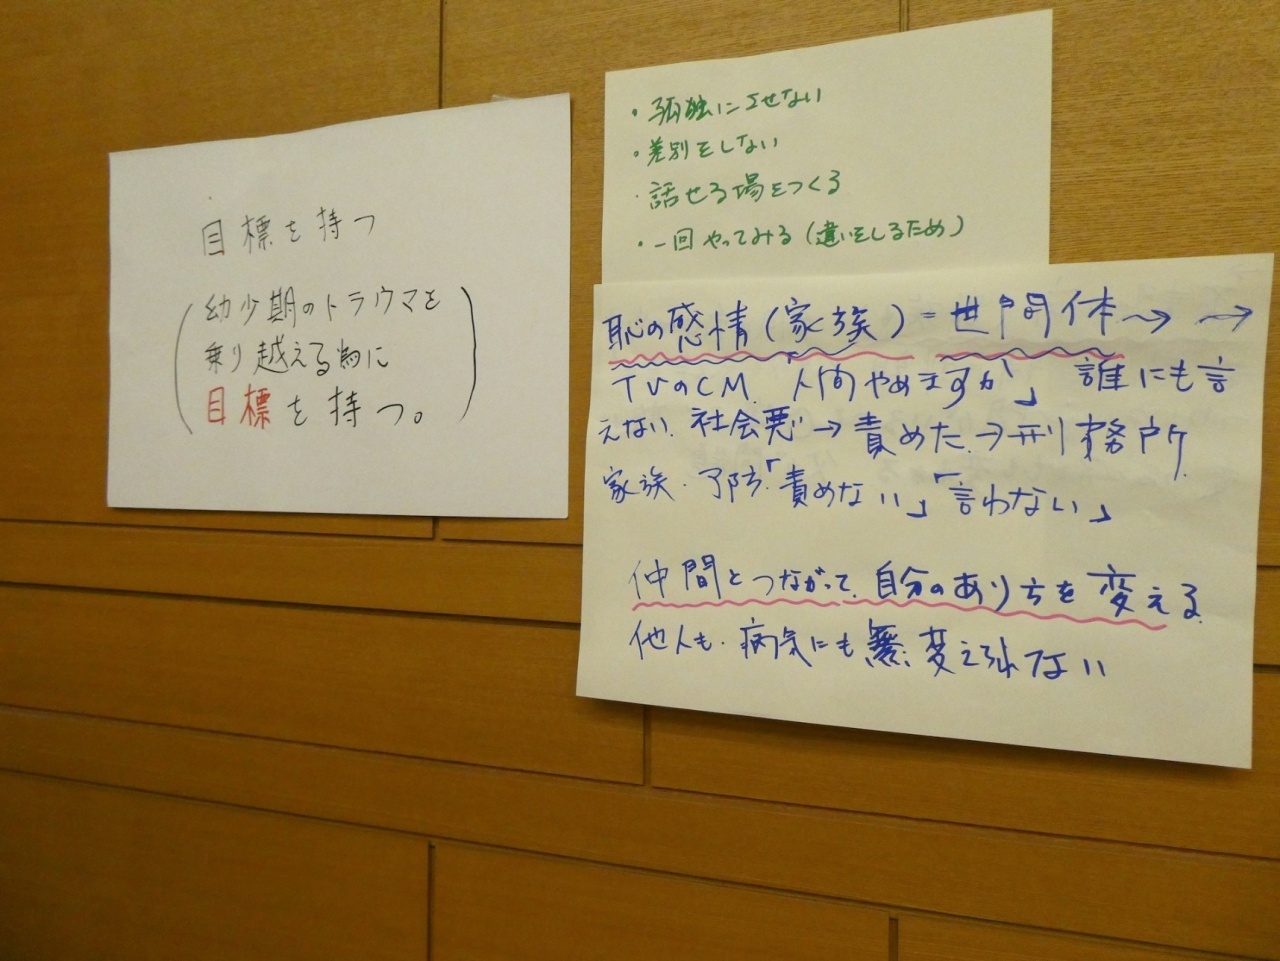 目標を持つ
(幼少期のトラウマを
乗り越える為に
目標を持つ。)
・孤独にさせない
・差別をしない
・話せる場をつくる
・一回やってみる(違いをしるため)
恥の感情(家族)=世間体→→
TVのCM.「人間やめますか」誰にも言
えない.社会悪→責めた.→刑務所
家族.予防.「責めない」「言わない」
仲間とつながって.自分のあり方を変える.
他人も.病気にも 変えられない